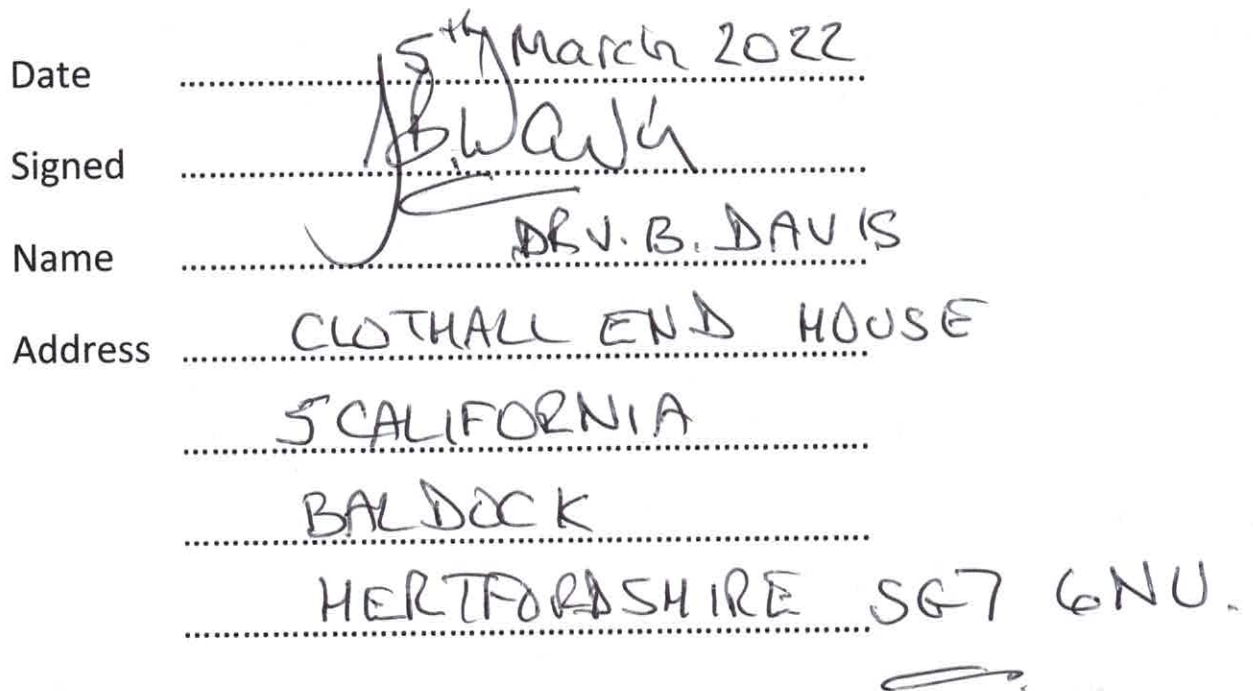 Date 5th March 2022
Signed
Name DR V. B. DAVIS
Address CLOTHALL END HOUSE
5 CALIFORNIA
BALDOCK
HERTFORDSHIRE SG7 6NU.